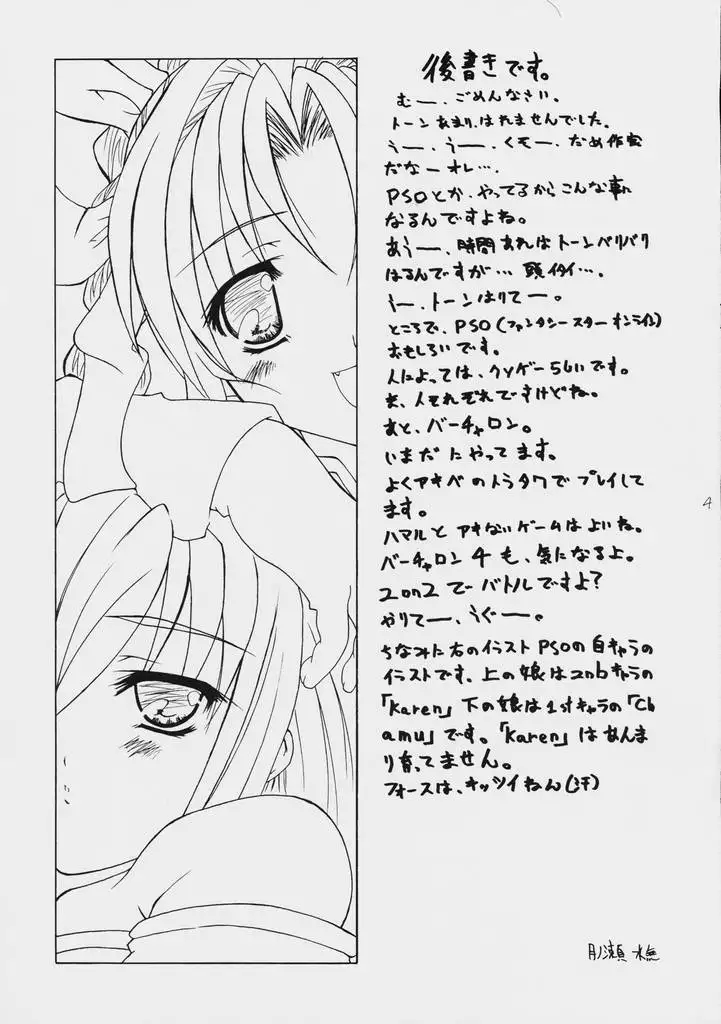 後書きです。
むー、ごめんなさい。
トーンあまり、はれませんでした。
うー、うー、くそー、だめ作家
だなーオレ…。
PSOとか、やってるからこんな事に
なるんですよね。
あうー、時間あればトーンバリバリ
はるんですが… 頭イタイ…。
うー、トーンはりてー。
ところで、PSO(ファンタシースターオンライン)
おもしろいです。
人によっては、クソゲーらしいです。
ま、人それぞれですけどね。
あと、バーチャロン。
いまだにやってます。
よくアキバのトラタワでプレイして
ます。
ハマルとアキないゲームはよいね。
バーチャロン4も、気になるよ。
2on2でバトルですよ?
やりてー、うぐー。
ちなみに右のイラストPSOの自キャラの
イラストです。上の娘は2ndキャラの
「Karen」下の娘は1stキャラの「Ch
amu」です。「Karen」はあんま
り育ってません。
フォースは、キッツイねん(汗)
4